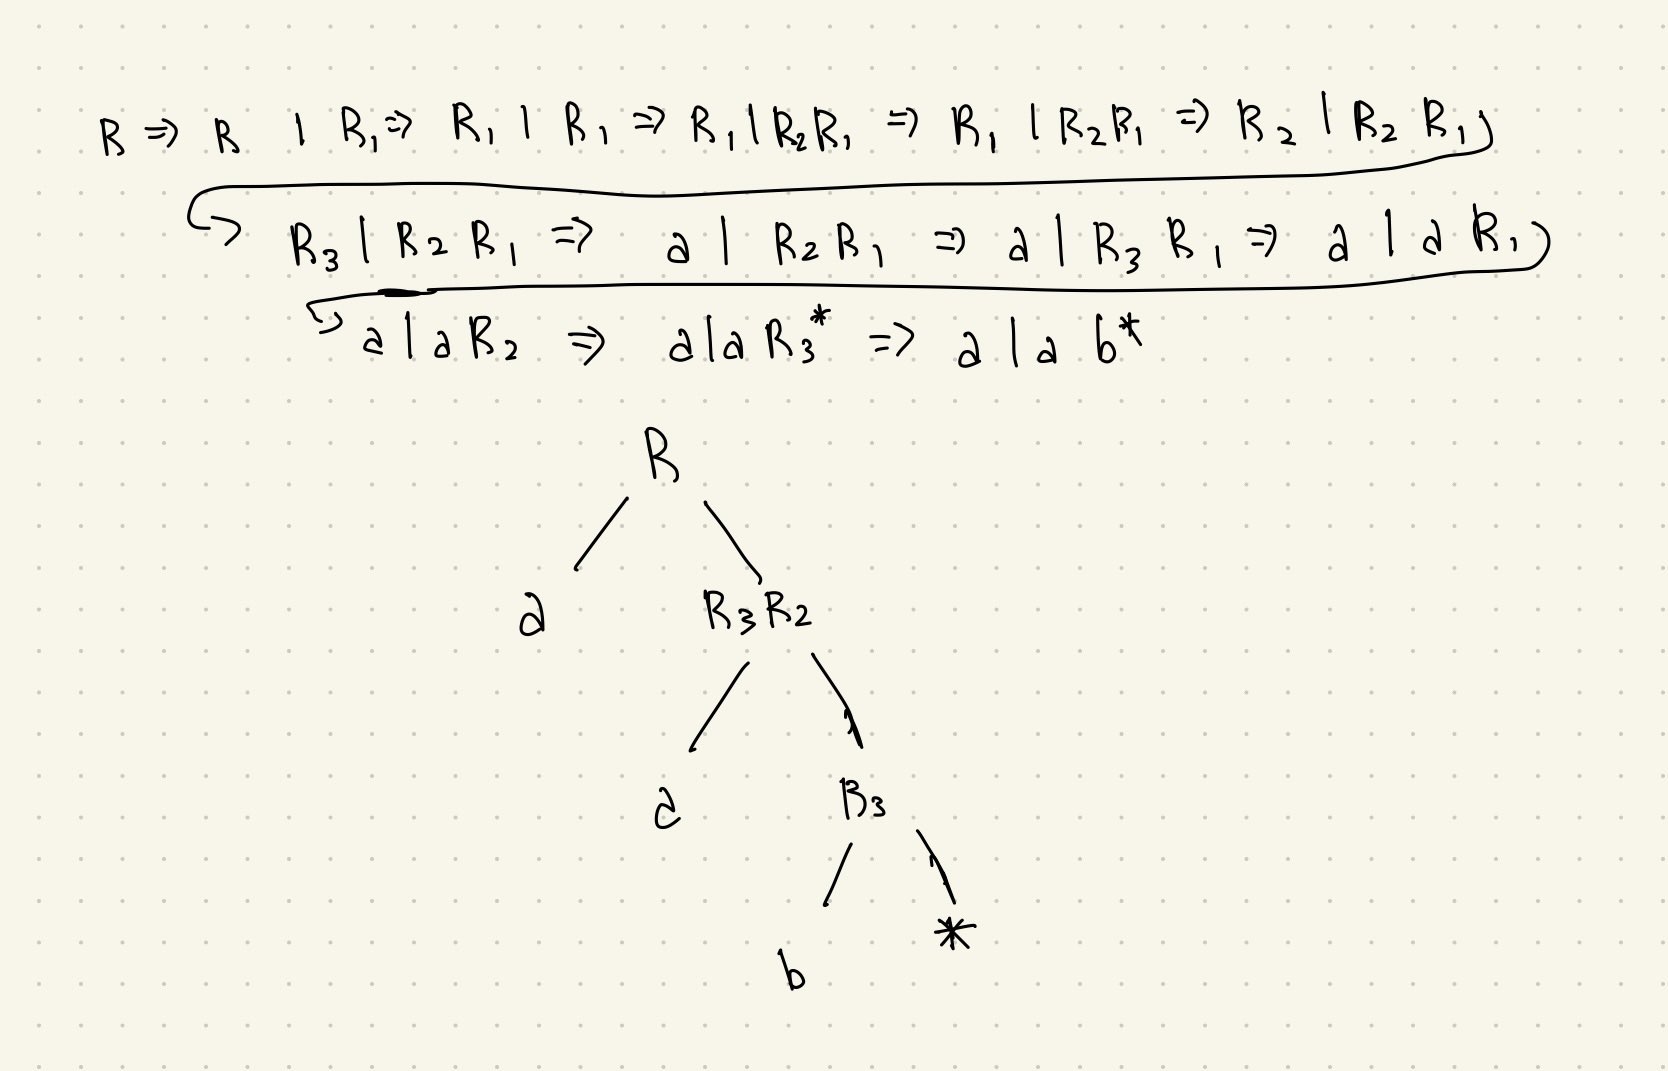 R ⇒ R | R₁ ⇒ R₁ | R₁ ⇒ R₁ | R₂R₁ ⇒ R₁ | R₂R₁ ⇒ R₂ | R₂ R₁
R₃ | R₂ R₁ ⇒ a | R₂ R₁ ⇒ a | R₃ R₁ ⇒ a | a R₁
a | a R₂ ⇒ a | a R₃* ⇒ a | a b*
R
a R₃ R₂
a R₃
b *